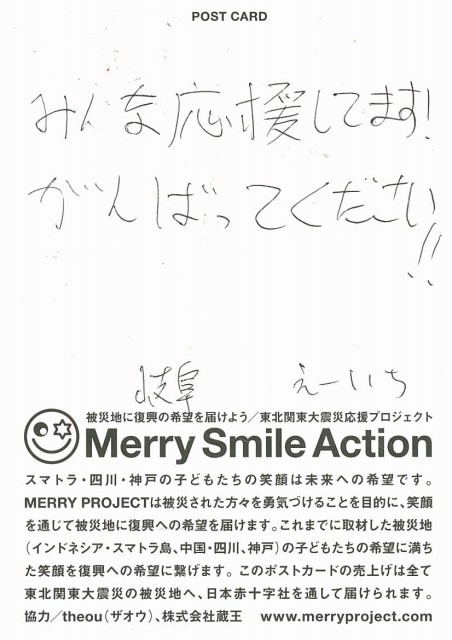 POST CARD
みんな応援してます!
がんばってください
!!
岐阜 えーいち
被災地に復興の希望を届けよう/東北関東大震災応援プロジェクト
Merry Smile Action
スマトラ・四川・神戸の子どもたちの笑顔は未来への希望です。
MERRY PROJECTは被災された方々を勇気づけることを目的に、笑顔
を通じて被災地に復興への希望を届けます。これまでに取材した被災地
(インドネシア・スマトラ島、中国・四川、神戸)の子どもたちの希望に満ち
た笑顔を復興への希望に繋げます。このポストカードの売上げは全て
東北関東大震災の被災地へ、日本赤十字社を通して届けられます。
協力/theou(ザオウ)、株式会社蔵王 www.merryproject.com